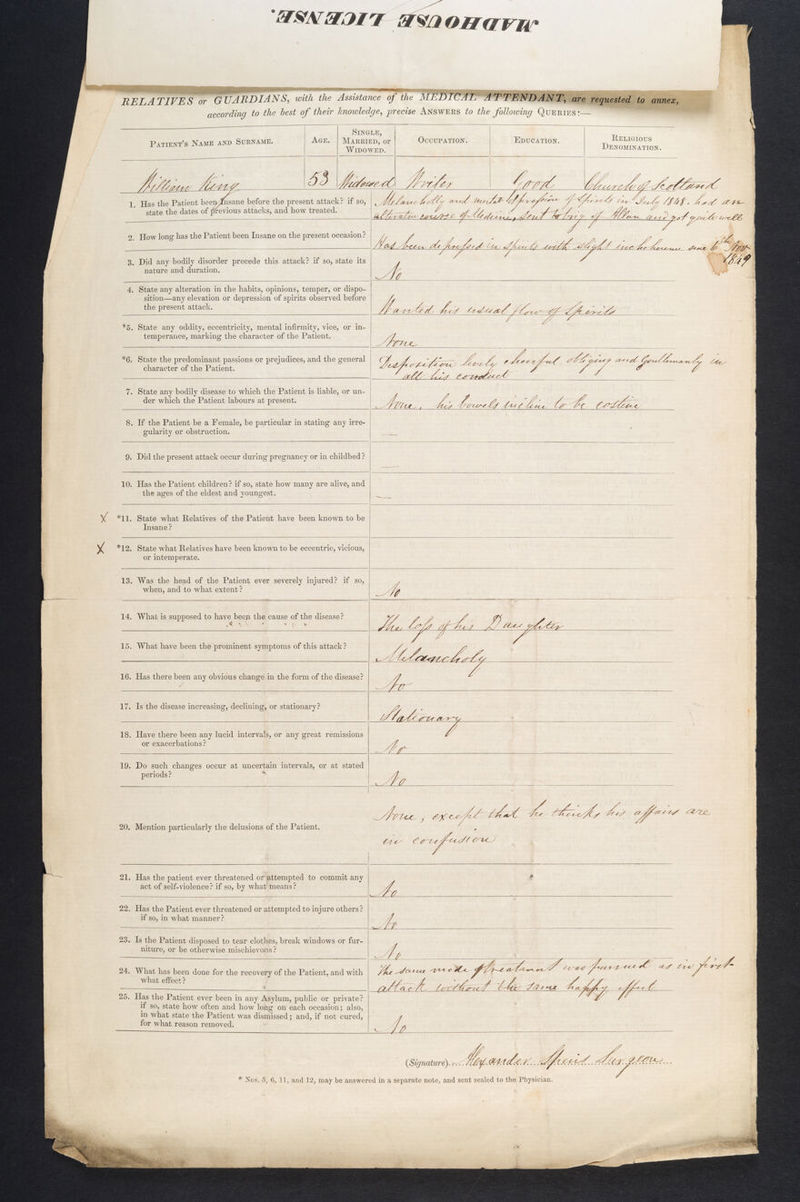 MADHOUSE LICENSE.
RELATIVES or GUARDIANS, with the Assistance of the MEDICAL ATTENDANT, are requested to annex,
according to the best of their knowledge, precise ANSWERS to the following QUERIES:—
PATIENT'S NAME AND SURNAME.
AGE.
SINGLE, MARRIED, or WIDOWED.
OCCUPATION.
EDUCATION.
RELIGIOUS DENOMINATION.
William King 53 Widowed Writer Good Church of Scotland
1. Has the Patient been Insane before the present attack? if so,
state the dates of previous attacks, and how treated.
Melancholly and mental depression of spirits in July 1848. had an
alterative course of Medicine, sent to Brig of Allan and got quite well
2. How long has the Patient been Insane on the present occasion?
Has been depressed in spirits with slight incoherence since 6th Novr
1849
3. Did any bodily disorder precede this attack? if so, state its
nature and duration.
No
4. State any alteration in the habits, opinions, temper, or dispo-
sition—any elevation or depression of spirits observed before
the present attack.
Wanted his usual flow of Spirits
*5. State any oddity, eccentricity, mental infirmity, vice, or in-
temperance, marking the character of the Patient.
None
*6. State the predominant passions or prejudices, and the general
character of the Patient.
Disposition lively cheerful obliging and Gentlemanly in
all his conduct
7. State any bodily disease to which the Patient is liable, or un-
der which the Patient labours at present.
None, his bowels incline to be costive
8. If the Patient be a Female, be particular in stating any irre-
gularity or obstruction.
—
9. Did the present attack occur during pregnancy or in childbed?
—
10. Has the Patient children? if so, state how many are alive, and
the ages of the eldest and youngest.
—
X *11. State what Relatives of the Patient have been known to be
Insane?
X *12. State what Relatives have been known to be eccentric, vicious,
or intemperate.
13. Was the head of the Patient ever severely injured? if so,
when, and to what extent?
No
14. What is supposed to have been the cause of the disease?
The loss of his Daughter
15. What have been the prominent symptoms of this attack?
Melancholy
16. Has there been any obvious change in the form of the disease?
No
17. Is the disease increasing, declining, or stationary?
Stationary
18. Have there been any lucid intervals, or any great remissions
or exacerbations?
No
19. Do such changes occur at uncertain intervals, or at stated
periods?
No
20. Mention particularly the delusions of the Patient.
None, except that he thinks his affairs are
in confusion
21. Has the patient ever threatened or attempted to commit any
act of self-violence? if so, by what means?
No
22. Has the Patient ever threatened or attempted to injure others?
if so, in what manner?
No
23. Is the Patient disposed to tear clothes, break windows or fur-
niture, or be otherwise mischievous?
No
24. What has been done for the recovery of the Patient, and with
what effect?
The same mode of treatment was pursued as in first
attack without the same happy effect
25. Has the Patient ever been in any Asylum, public or private?
if so, state how often and how long on each occasion; also,
in what state the Patient was dismissed; and, if not cured,
for what reason removed.
No
(Signature) Alexander Speirs Surgeon
* Nos. 5, 6, 11, and 12, may be answered in a separate note, and sent sealed to the Physician.